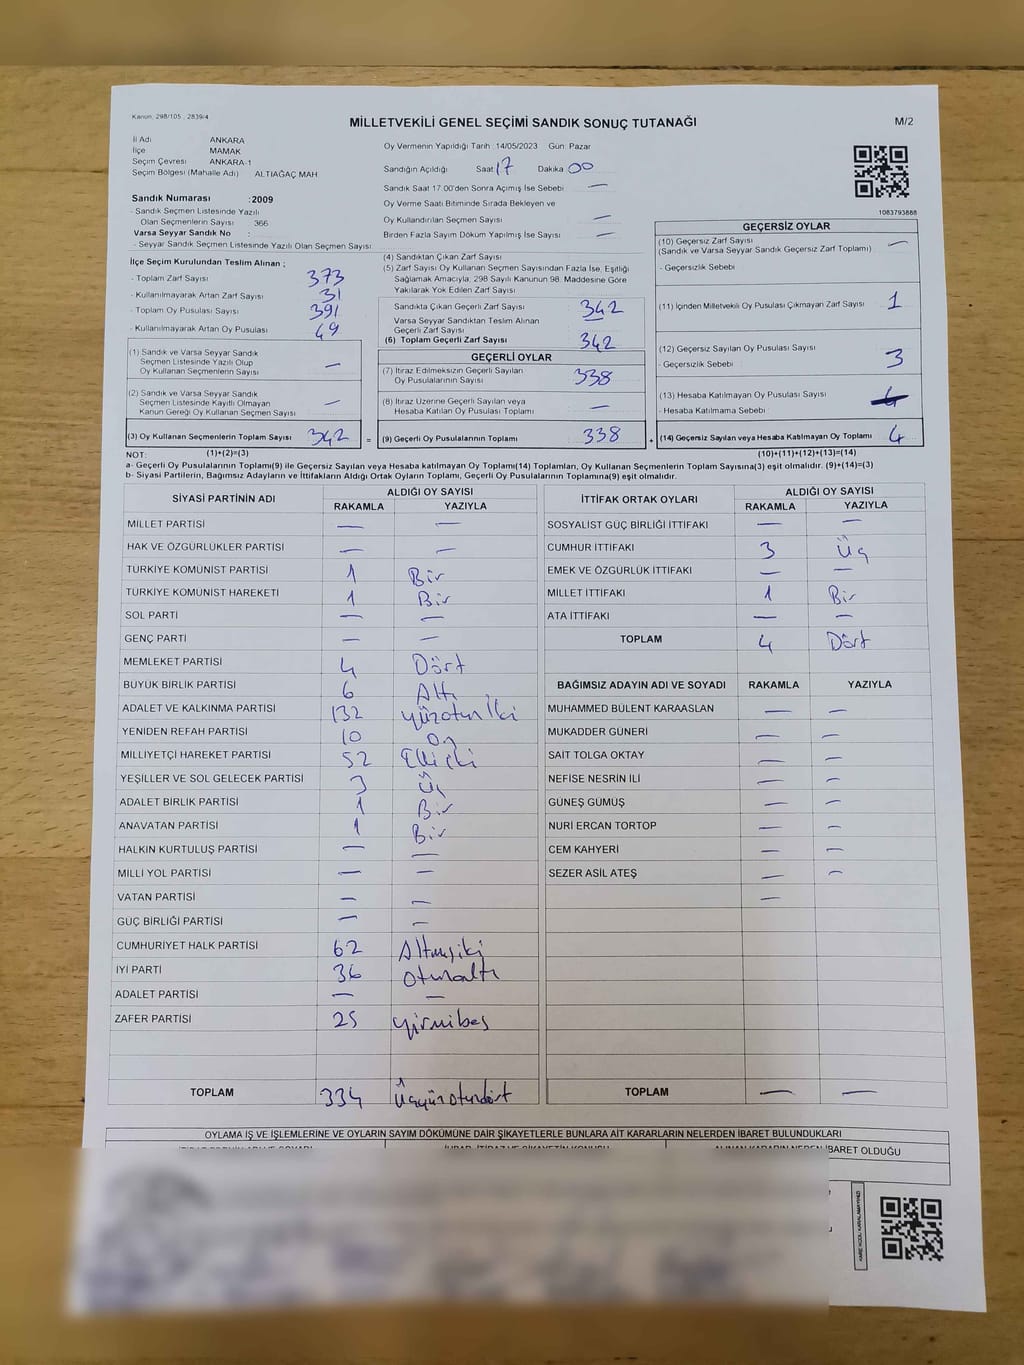 Kanun, 298/105 , 2839/4
MİLLETVEKİLİ GENEL SEÇİMİ SANDIK SONUÇ TUTANAĞI
M/2
İl Adı ANKARA
İlçe MAMAK
Seçim Çevresi ANKARA-1
Seçim Bölgesi (Mahalle Adı) ALTIAĞAÇ MAH.
Sandık Numarası : 2009
- Sandık Seçmen Listesinde Yazılı
Olan Seçmenlerin Sayısı : 366
Varsa Seyyar Sandık No :
- Seyyar Sandık Seçmen Listesinde Yazılı Olan Seçmen Sayısı:
Oy Vermenin Yapıldığı Tarih :14/05/2023 Gün: Pazar
Sandığın Açıldığı Saat 17 Dakika 00
Sandık Saat 17.00'den Sonra Açılmış İse Sebebi —
Oy Verme Saati Bitiminde Sırada Bekleyen ve
Oy Kullandırılan Seçmen Sayısı —
Birden Fazla Sayım Döküm Yapılmış İse Sayısı —
1083793888
İlçe Seçim Kurulundan Teslim Alınan ;
- Toplam Zarf Sayısı 373
- Kullanılmayarak Artan Zarf Sayısı 31
- Toplam Oy Pusulası Sayısı 391
- Kullanılmayarak Artan Oy Pusulası 49
(1) Sandık ve Varsa Seyyar Sandık
Seçmen Listesinde Yazılı Olup
Oy Kullanan Seçmenlerin Sayısı —
(2) Sandık ve Varsa Seyyar Sandık
Seçmen Listesinde Kayıtlı Olmayan
Kanun Gereği Oy Kullanan Seçmen Sayısı —
(3) Oy Kullanan Seçmenlerin Toplam Sayısı 342 =
(1)+(2)=(3)
(4) Sandıktan Çıkan Zarf Sayısı
(5) Zarf Sayısı Oy Kullanan Seçmen Sayısından Fazla İse, Eşitliği
Sağlamak Amacıyla, 298 Sayılı Kanunun 98. Maddesine Göre
Yakılarak Yok Edilen Zarf Sayısı
Sandıkta Çıkan Geçerli Zarf Sayısı 342
Varsa Seyyar Sandıktan Teslim Alınan
Geçerli Zarf Sayısı
(6) Toplam Geçerli Zarf Sayısı 342
GEÇERLİ OYLAR
(7) İtiraz Edilmeksizin Geçerli Sayılan
Oy Pusulalarının Sayısı 338
(8) İtiraz Üzerine Geçerli Sayılan veya
Hesaba Katılan Oy Pusulası Toplamı —
(9) Geçerli Oy Pusulalarının Toplamı 338 +
GEÇERSİZ OYLAR
(10) Geçersiz Zarf Sayısı —
(Sandık ve Varsa Seyyar Sandık Geçersiz Zarf Toplamı)
- Geçersizlik Sebebi
(11) İçinden Milletvekili Oy Pusulası Çıkmayan Zarf Sayısı 1
(12) Geçersiz Sayılan Oy Pusulası Sayısı 3
- Geçersizlik Sebebi
(13) Hesaba Katılmayan Oy Pusulası Sayısı
- Hesaba Katılmama Sebebi
(14) Geçersiz Sayılan veya Hesaba Katılmayan Oy Toplamı 4
(10)+(11)+(12)+(13)=(14)
NOT:
a- Geçerli Oy Pusulalarının Toplamı(9) ile Geçersiz Sayılan veya Hesaba katılmayan Oy Toplamı(14) Toplamları, Oy Kullanan Seçmenlerin Toplam Sayısına(3) eşit olmalıdır. (9)+(14)=(3)
b- Siyasi Partilerin, Bağımsız Adayların ve İttifakların Aldığı Ortak Oyların Toplamı, Geçerli Oy Pusulalarının Toplamına(9) eşit olmalıdır.
SİYASİ PARTİNİN ADI ALDIĞI OY SAYISI
RAKAMLA YAZIYLA
MİLLET PARTİSİ — —
HAK VE ÖZGÜRLÜKLER PARTİSİ — —
TÜRKİYE KOMÜNİST PARTİSİ 1 Bir
TÜRKİYE KOMÜNİST HAREKETİ 1 Bir
SOL PARTİ — —
GENÇ PARTİ — —
MEMLEKET PARTİSİ 4 Dört
BÜYÜK BİRLİK PARTİSİ 6 Altı
ADALET VE KALKINMA PARTİSİ 132 yüzotuziki
YENİDEN REFAH PARTİSİ 10 On
MİLLİYETÇİ HAREKET PARTİSİ 52 Elliiki
YEŞİLLER VE SOL GELECEK PARTİSİ 3 Üç
ADALET BİRLİK PARTİSİ 1 Bir
ANAVATAN PARTİSİ 1 Bir
HALKIN KURTULUŞ PARTİSİ — —
MİLLİ YOL PARTİSİ — —
VATAN PARTİSİ — —
GÜÇ BİRLİĞİ PARTİSİ — —
CUMHURİYET HALK PARTİSİ 62 Altmışiki
İYİ PARTİ 36 Otuzaltı
ADALET PARTİSİ — —
ZAFER PARTİSİ 25 yirmibeş
TOPLAM 334 Üçyüzotuzdört
İTTİFAK ORTAK OYLARI ALDIĞI OY SAYISI
RAKAMLA YAZIYLA
SOSYALİST GÜÇ BİRLİĞİ İTTİFAKI — —
CUMHUR İTTİFAKI 3 Üç
EMEK VE ÖZGÜRLÜK İTTİFAKI — —
MİLLET İTTİFAKI 1 Bir
ATA İTTİFAKI — —
TOPLAM 4 Dört
BAĞIMSIZ ADAYIN ADI VE SOYADI RAKAMLA YAZIYLA
MUHAMMED BÜLENT KARAASLAN — —
MUKADDER GÜNERİ — —
SAİT TOLGA OKTAY — —
NEFİSE NESRİN İLİ — —
GÜNEŞ GÜMÜŞ — —
NURİ ERCAN TORTOP — —
CEM KAHYERİ — —
SEZER ASİL ATEŞ — —
—
TOPLAM — —
OYLAMA İŞ VE İŞLEMLERİNE VE OYLARIN SAYIM DÖKÜMÜNE DAİR ŞİKAYETLERLE BUNLARA AİT KARARLARIN NELERDEN İBARET BULUNDUKLARI
İBARET OLDUĞU
KARE KODU KARALAMAYINIZ!